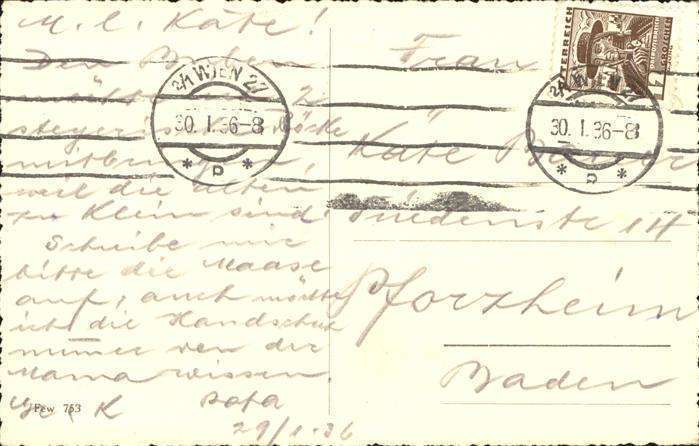 M. l. Käte!
Den Buben
möchte 2
steyerische Röcke
mitbringen,
weil die alten
zu klein sind.
Schreibe mir
bitte die Maase
auf, auch möchte
ich die Handschuh
numer von der
Mama wissen.
K Papa
29/1.36
Few 753
2/1 WIEN 27
30. I. 36-8
* P *
ÖSTERREICH
2/1 WIEN 27
30. I. 36-8
* P *
Frau
Käte
14
Pforzheim
Baden